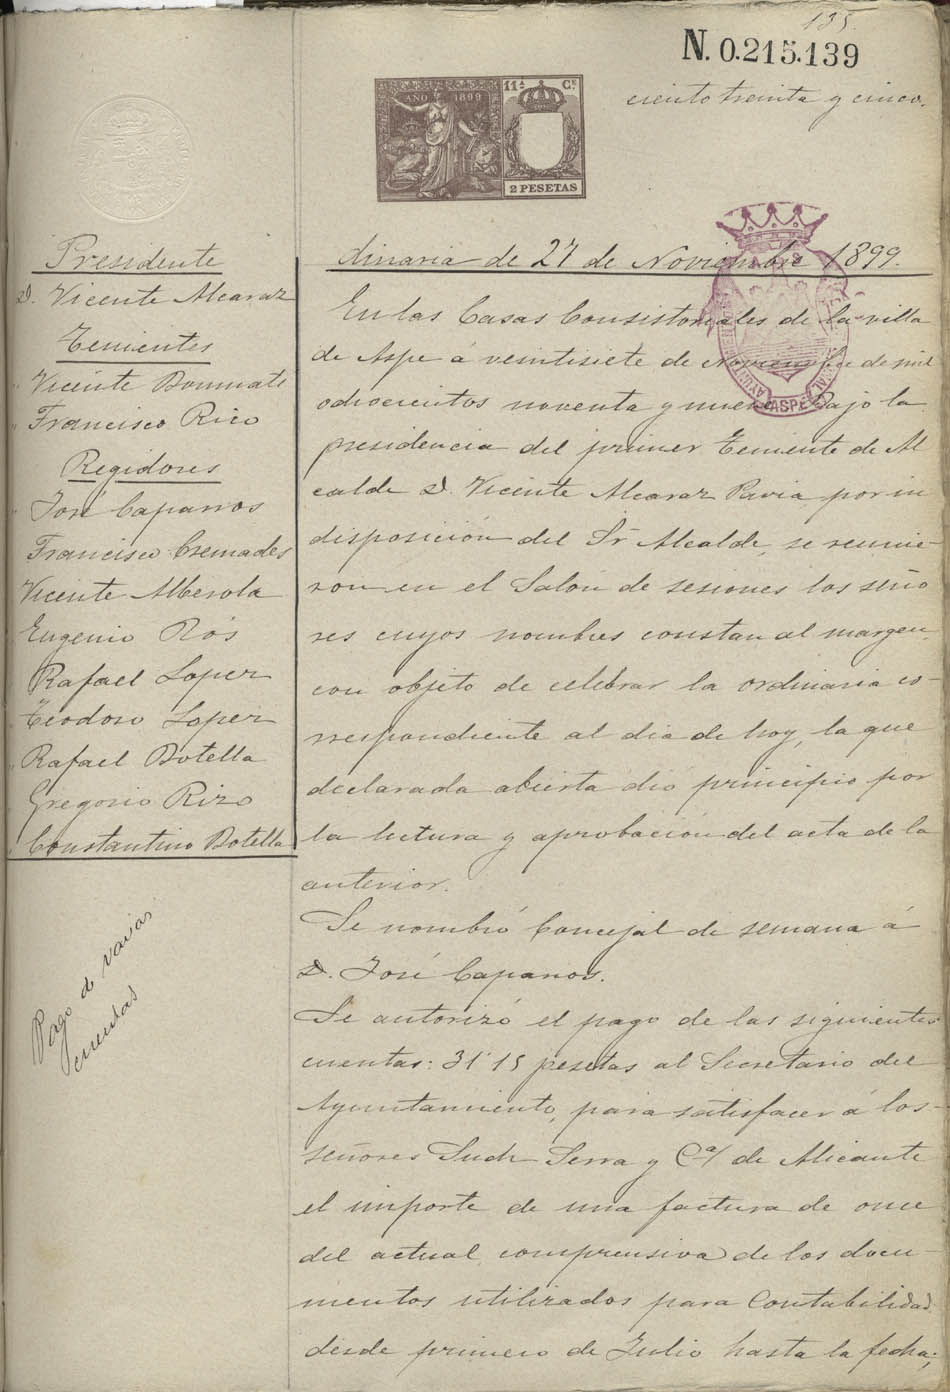 135.
N. 0.215.139
ciento treinta y cinco.
AÑO 1899
11ª Cˢ
2 PESETAS
Presidente
D. Vicente Alcaraz
Tenientes
" Vicente Bonmati
" Francisco Rico
Regidores
" José Caparros
Francisco Cremades
Vicente Alberola
Eugenio Rós
Rafael Lopez
" Teodoro Lopez
" Rafael Botella
Gregorio Rizo
Constantino Botella
Pago de varias
cuentas
dinaria de 27 de Noviembre 1899.
En las Casas Consistoriales de la villa
de Aspe á veintisiete de Noviembre de mil
ochocientos noventa y nueve. Bajo la
presidencia del primer Teniente de Al
calde D. Vicente Alcaraz Pavia por in
disposición del Sr Alcalde, se reunie-
ron en el Salón de sesiones los seño
res cuyos nombres constan al margen,
con objeto de celebrar la ordinaria co-
rrespondiente al dia de hoy, la que
declarada abierta dió principio por
la lectura y aprobación del acta de la
anterior.
Se nombró Concejal de semana á
D. José Caparros.
Se autorizó el pago de las siguientes
cuentas: 31'15 pesetas al Secretario del
Ayuntamiento, para satisfacer á los-
señores Such Serra y Cª/ de Alicante
el importe de una factura de once
del actual comprensiva de los docu-
mentos utilizados para Contabilidad
desde primero de Julio hasta la fecha;
ASPE